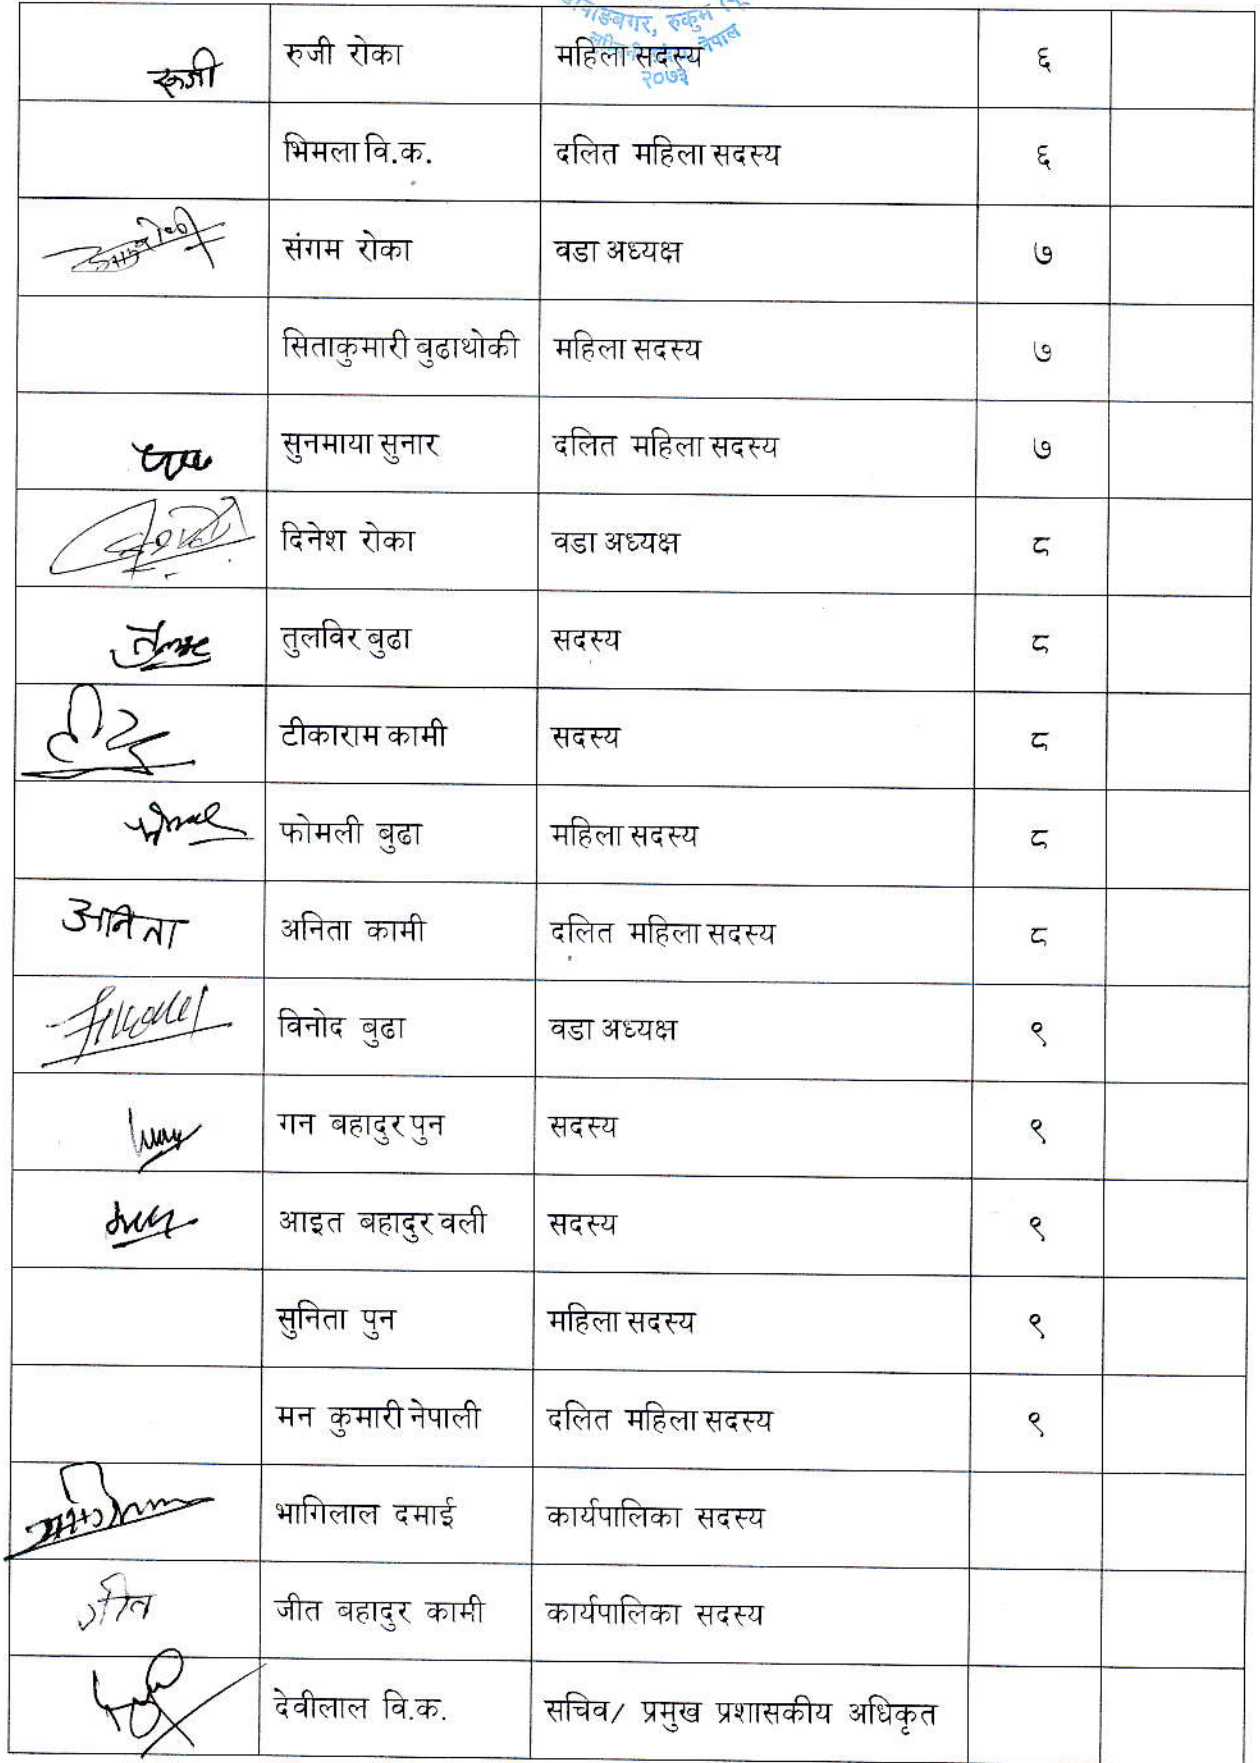 रुकुम
नेपाल
२०७३
रुजी रुजी रोका महिला सदस्य ६
भिमला वि.क. दलित महिला सदस्य ६
संगम रोका वडा अध्यक्ष ७
सिताकुमारी बुढाथोकी महिला सदस्य ७
सुनमाया सुनार दलित महिला सदस्य ७
दिनेश रोका वडा अध्यक्ष ८
तुलविर बुढा सदस्य ८
टीकाराम कामी सदस्य ८
फोमली बुढा महिला सदस्य ८
अनिता अनिता कामी दलित महिला सदस्य ८
विनोद बुढा वडा अध्यक्ष ९
गन बहादुर पुन सदस्य ९
आइत बहादुर वली सदस्य ९
सुनिता पुन महिला सदस्य ९
मन कुमारी नेपाली दलित महिला सदस्य ९
भागिलाल दमाई कार्यपालिका सदस्य
जीत जीत बहादुर कामी कार्यपालिका सदस्य
देवीलाल वि.क. सचिव/ प्रमुख प्रशासकीय अधिकृत